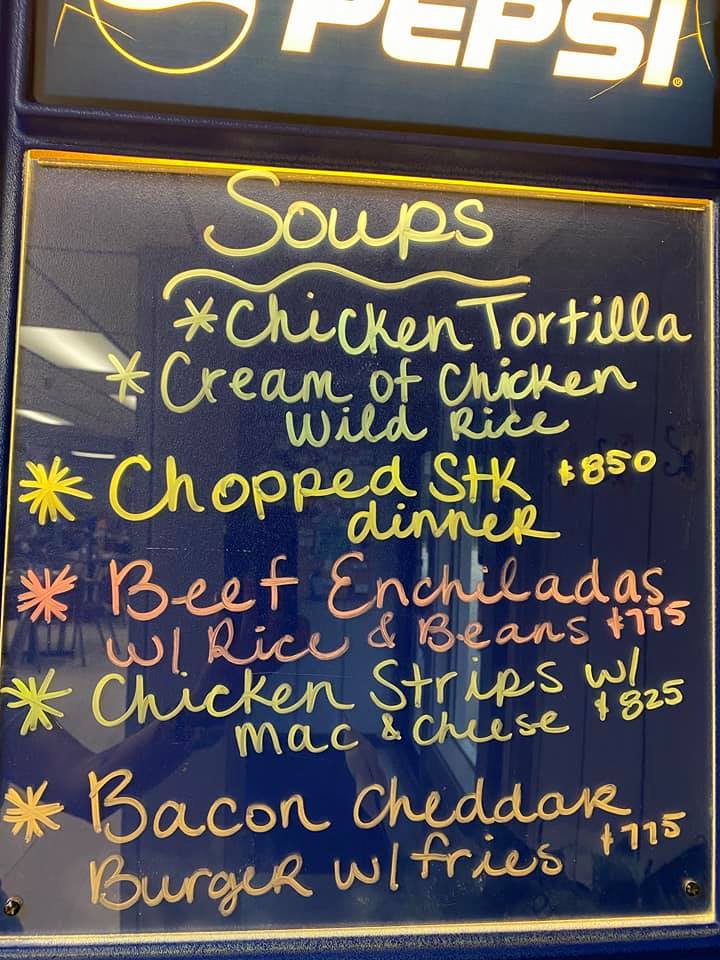 PEPSI
Soups
*Chicken Tortilla
*Cream of Chicken
Wild Rice
* Chopped Stk $850
dinner
* Beef Enchiladas
w/ Rice & Beans $775
* Chicken Strips w/
mac & cheese $825
* Bacon Cheddar
Burger w/ fries $775